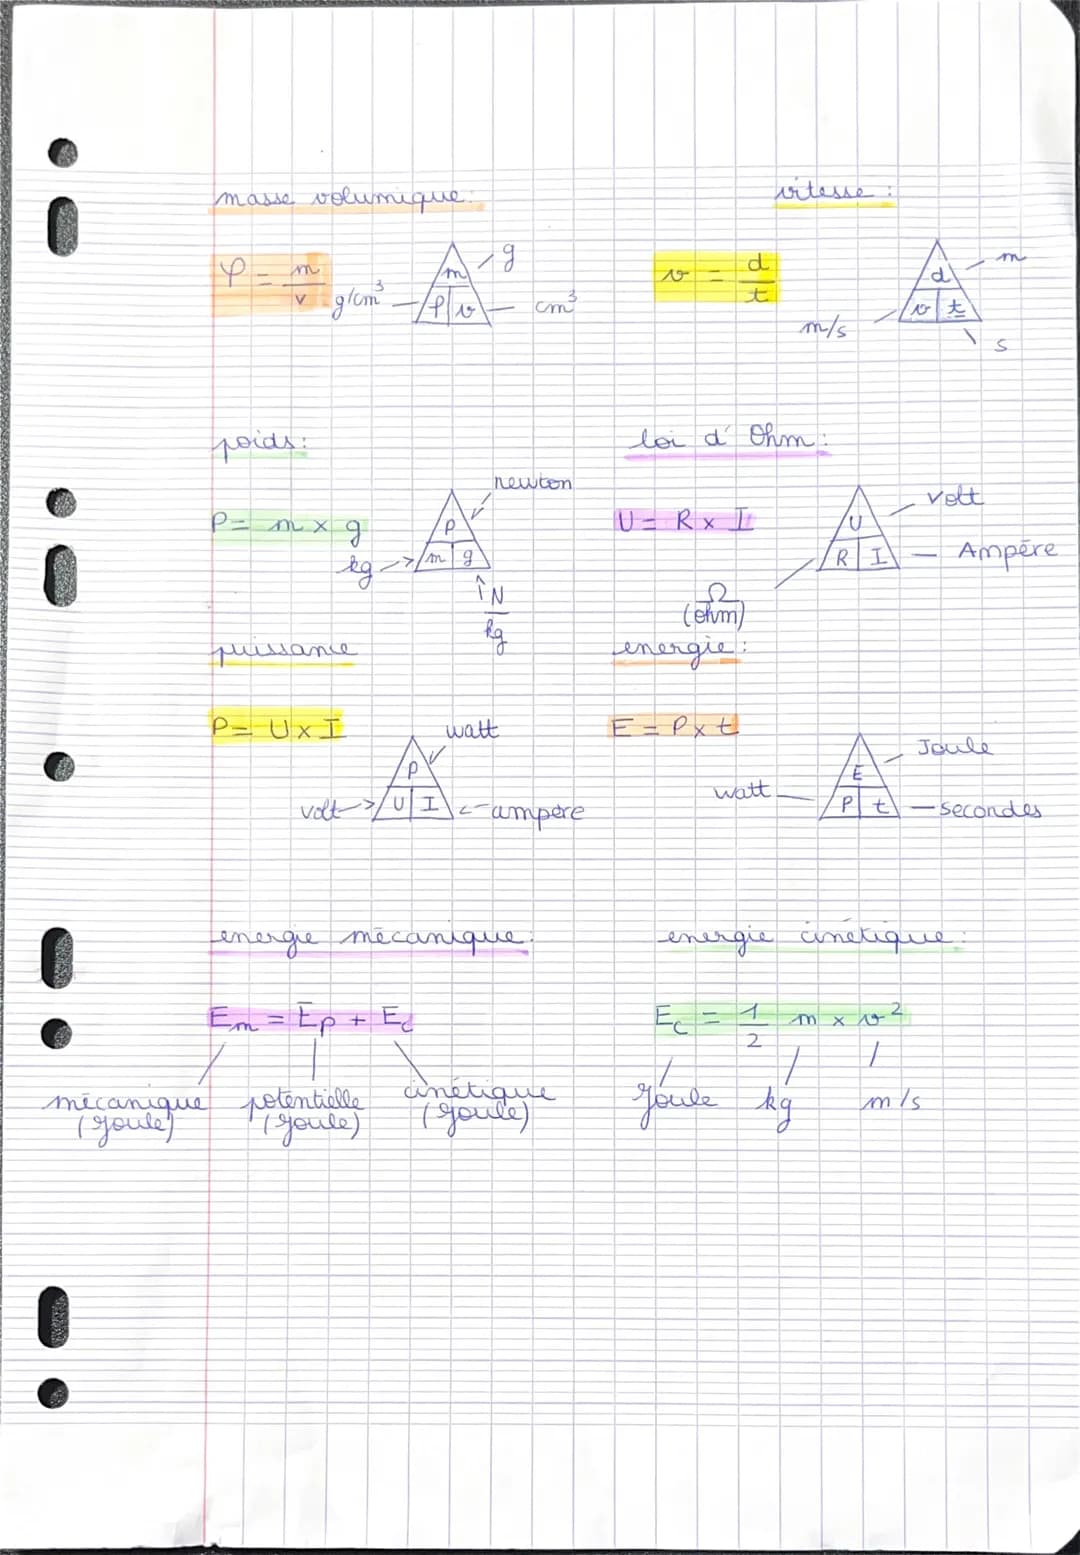 masse volumique:
φ = m/v
m
φ v
g
g/cm³
cm³
vitesse :
v = d/t
d
v t
m
m/s
s
poids:
P = m x g
P
m g
newton
kg
N/kg
loi d'Ohm:
U = R x I
U
R I
volt
Ampère
Ω
(ohm)
puissance
P = U x I
P
U I
watt
volt
ampère
energie :
E = P x t
E
P t
Joule
watt
secondes
energie mécanique:
Em = Ep + Ec
mécanique
(Joule)
potentielle
(Joule)
cinétique
(Joule)
energie cinétique:
Ec = 1/2 m x v²
Joule kg m/s